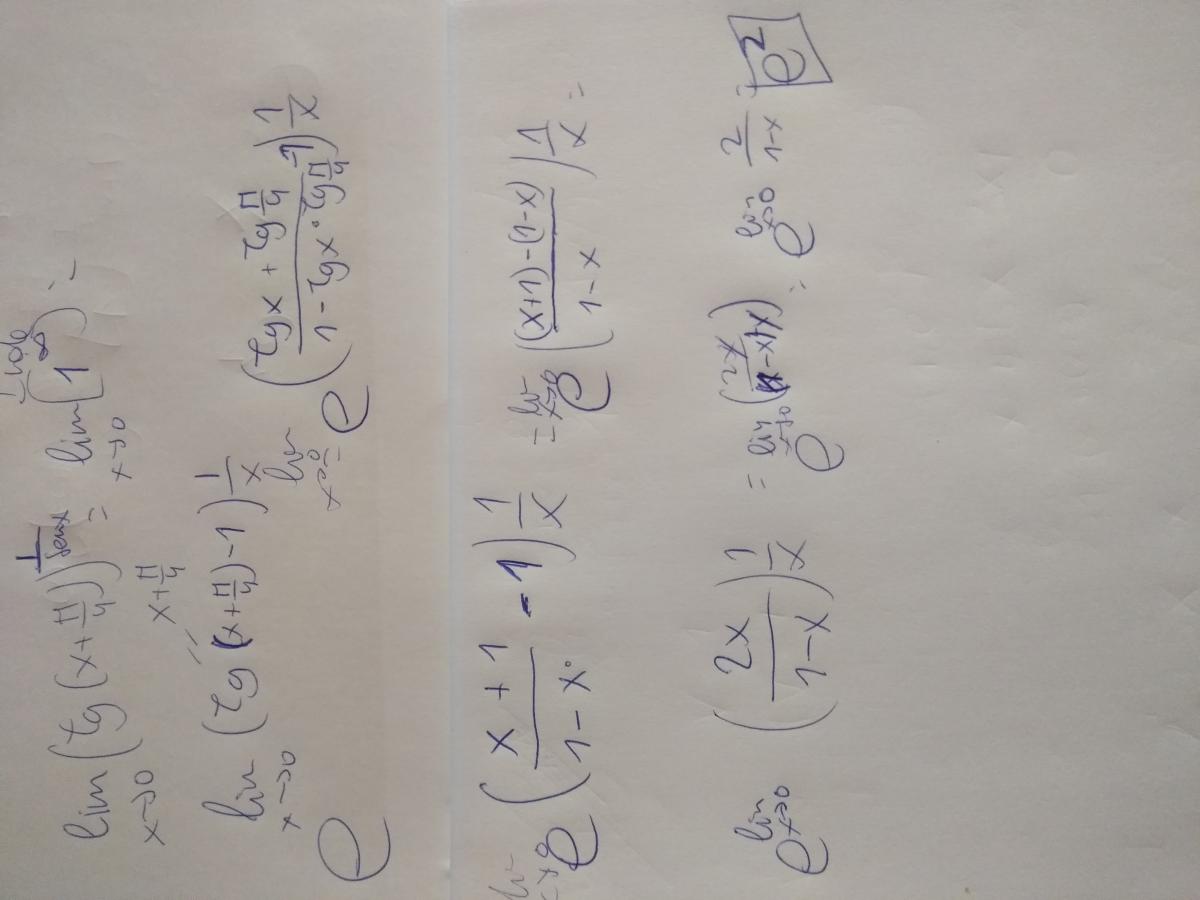 lim x→0 (tg(x+π/4))^(1/senx) = lim x→0 (1^∞) =
x+π/4
e^(lim x→0 (tg(x+π/4)-1) 1/x) = e^(lim x→0 ((tgx + tgπ/4)/(1-tgx·tgπ/4) -1) 1/x)
e^(lim x→0 ((x+1)/(1-x) -1) 1/x) = e^(lim x→0 (((x+1)-(1-x))/(1-x)) 1/x) =
e^(lim x→0 (2x/(1-x)) 1/x) = e^(lim x→0 (2x/((1-x)x))) = e^(lim x→0 2/(1-x)) = e²